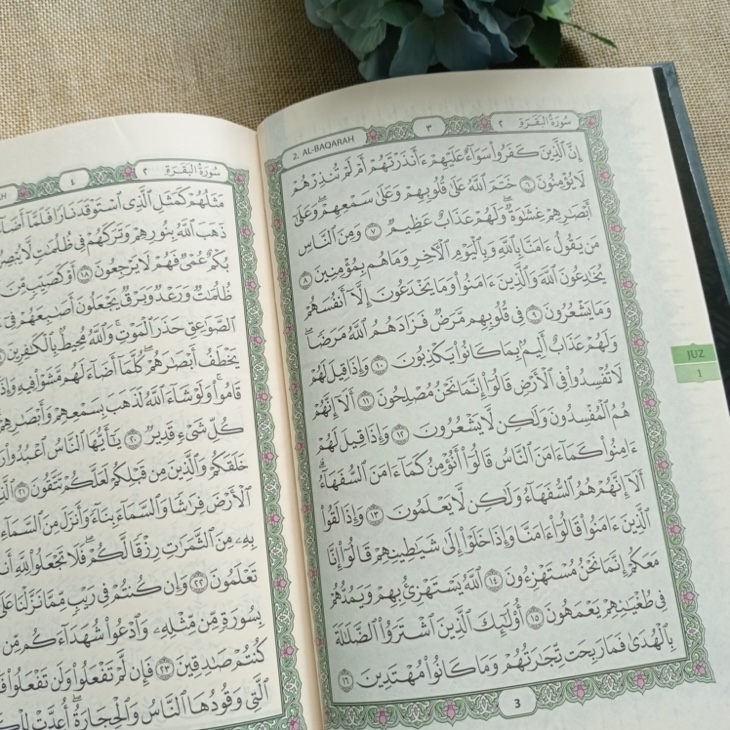 2. AL-BAQARAH
٣
سُورَةُ الْبَقَرَةِ ٢
إِنَّ الَّذِينَ كَفَرُوا سَوَاءٌ عَلَيْهِمْ ءَأَنذَرْتَهُمْ أَمْ لَمْ تُنذِرْهُمْ
لَا يُؤْمِنُونَ ٦ خَتَمَ اللَّهُ عَلَىٰ قُلُوبِهِمْ وَعَلَىٰ سَمْعِهِمْ ۖ وَعَلَىٰ
أَبْصَٰرِهِمْ غِشَٰوَةٌ ۖ وَلَهُمْ عَذَابٌ عَظِيمٌ ٧ وَمِنَ النَّاسِ
مَن يَقُولُ ءَامَنَّا بِاللَّهِ وَبِالْيَوْمِ الْءَاخِرِ وَمَا هُم بِمُؤْمِنِينَ ٨
يُخَٰدِعُونَ اللَّهَ وَالَّذِينَ ءَامَنُوا وَمَا يَخْدَعُونَ إِلَّا أَنفُسَهُمْ
وَمَا يَشْعُرُونَ ٩ فِي قُلُوبِهِم مَّرَضٌ فَزَادَهُمُ اللَّهُ مَرَضًا ۖ
وَلَهُمْ عَذَابٌ أَلِيمٌ بِمَا كَانُوا يَكْذِبُونَ ١٠ وَإِذَا قِيلَ لَهُمْ
لَا تُفْسِدُوا فِي الْأَرْضِ قَالُوا إِنَّمَا نَحْنُ مُصْلِحُونَ ١١ أَلَا إِنَّهُمْ
هُمُ الْمُفْسِدُونَ وَلَٰكِن لَّا يَشْعُرُونَ ١٢ وَإِذَا قِيلَ لَهُمْ
ءَامِنُوا كَمَا ءَامَنَ النَّاسُ قَالُوا أَنُؤْمِنُ كَمَا ءَامَنَ السُّفَهَاءُ ۗ
أَلَا إِنَّهُمْ هُمُ السُّفَهَاءُ وَلَٰكِن لَّا يَعْلَمُونَ ١٣ وَإِذَا لَقُوا
الَّذِينَ ءَامَنُوا قَالُوا ءَامَنَّا وَإِذَا خَلَوْا إِلَىٰ شَيَٰطِينِهِمْ قَالُوا إِنَّا
مَعَكُمْ إِنَّمَا نَحْنُ مُسْتَهْزِءُونَ ١٤ اللَّهُ يَسْتَهْزِئُ بِهِمْ وَيَمُدُّهُمْ
فِي طُغْيَٰنِهِمْ يَعْمَهُونَ ١٥ أُولَٰئِكَ الَّذِينَ اشْتَرَوُا الضَّلَٰلَةَ
بِالْهُدَىٰ فَمَا رَبِحَت تِّجَٰرَتُهُمْ وَمَا كَانُوا مُهْتَدِينَ ١٦
3
JUZ
1
٤
سُورَةُ الْبَقَرَةِ ٢
مَثَلُهُمْ كَمَثَلِ الَّذِي اسْتَوْقَدَ نَارًا فَلَمَّا
ذَهَبَ اللَّهُ بِنُورِهِمْ وَتَرَكَهُمْ فِي ظُلُمَٰتٍ لَّا
بُكْمٌ عُمْيٌ فَهُمْ لَا يَرْجِعُونَ ١٨ أَوْ كَصَيِّبٍ مِّنَ
ظُلُمَٰتٌ وَرَعْدٌ وَبَرْقٌ يَجْعَلُونَ أَصَٰبِعَهُمْ فِي
الصَّوَٰعِقِ حَذَرَ الْمَوْتِ ۚ وَاللَّهُ مُحِيطٌ بِالْكَٰفِرِينَ
يَخْطَفُ أَبْصَٰرَهُمْ ۖ كُلَّمَا أَضَاءَ لَهُم مَّشَوْا فِيهِ وَإِذَا
قَامُوا ۚ وَلَوْ شَاءَ اللَّهُ لَذَهَبَ بِسَمْعِهِمْ وَأَبْصَٰرِهِمْ
كُلِّ شَيْءٍ قَدِيرٌ ٢٠ يَٰأَيُّهَا النَّاسُ اعْبُدُوا
خَلَقَكُمْ وَالَّذِينَ مِن قَبْلِكُمْ لَعَلَّكُمْ تَتَّقُونَ ٢١
الْأَرْضَ فِرَٰشًا وَالسَّمَاءَ بِنَاءً وَأَنزَلَ مِنَ السَّمَاءِ
بِهِ مِنَ الثَّمَرَٰتِ رِزْقًا لَّكُمْ ۖ فَلَا تَجْعَلُوا لِلَّهِ
تَعْلَمُونَ ٢٢ وَإِن كُنتُمْ فِي رَيْبٍ مِّمَّا نَزَّلْنَا عَلَىٰ
بِسُورَةٍ مِّن مِّثْلِهِ وَادْعُوا شُهَدَاءَكُم مِّن
كُنتُمْ صَٰدِقِينَ ٢٣ فَإِن لَّمْ تَفْعَلُوا وَلَن تَفْعَلُوا
الَّتِي وَقُودُهَا النَّاسُ وَالْحِجَارَةُ ۖ أُعِدَّتْ